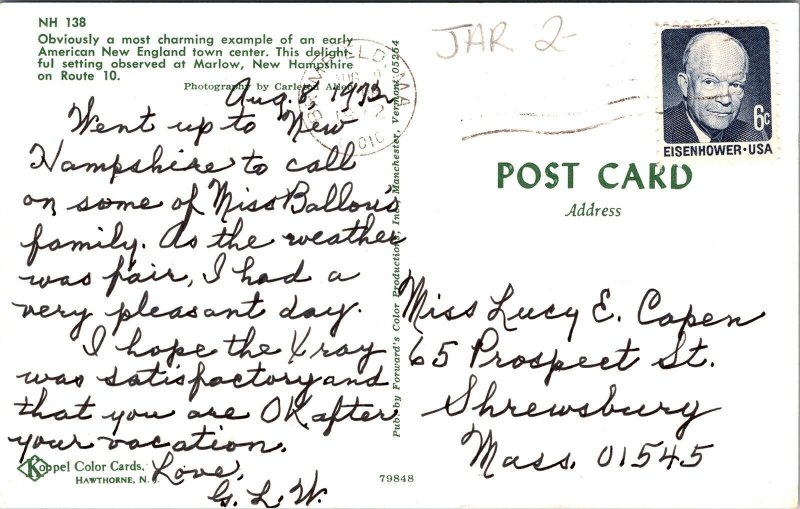 NH 138
Obviously a most charming example of an early
American New England town center. This delight-
ful setting observed at Marlow, New Hampshire
on Route 10.
Photography by Carleton Allen
Aug. 8, 1972
Went up to New
Hampshire to call
on some of Miss Ballou's
family. As the weather
was fair, I had a
very pleasant day.
I hope the Xray
was satisfactory and
that you are OK after
your vacation.
Love,
G. L. W.
Koppel Color Cards,
HAWTHORNE, N. J.
79848
Publ by Forward's Color Productions, Inc., Manchester, Vermont 05254
JAR 2-
6c
EISENHOWER · USA
POST CARD
Address
Miss Lucy E. Capen
65 Prospect St.
Shrewsbury
Mass. 01545